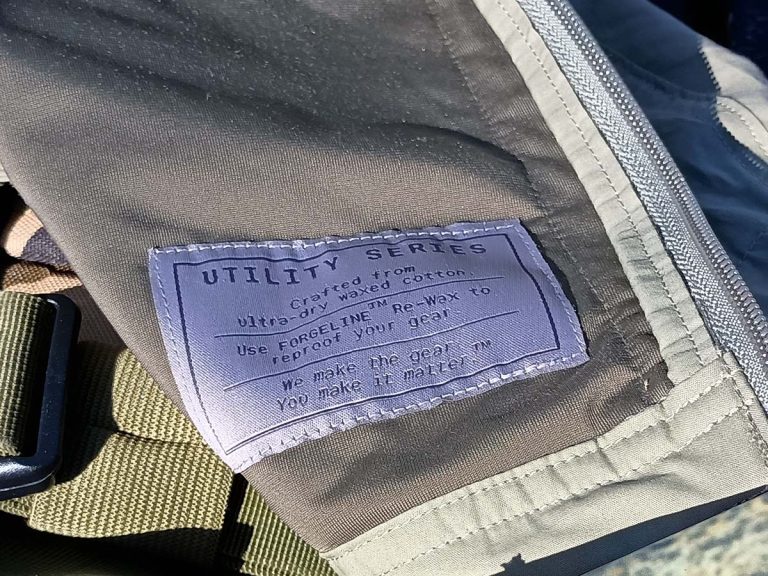 UTILITY SERIES
Crafted from
ultra-dry waxed cotton.
Use FORGELINE™ Re-Wax to
reproof your gear.
We make the gear.
You make it matter.™